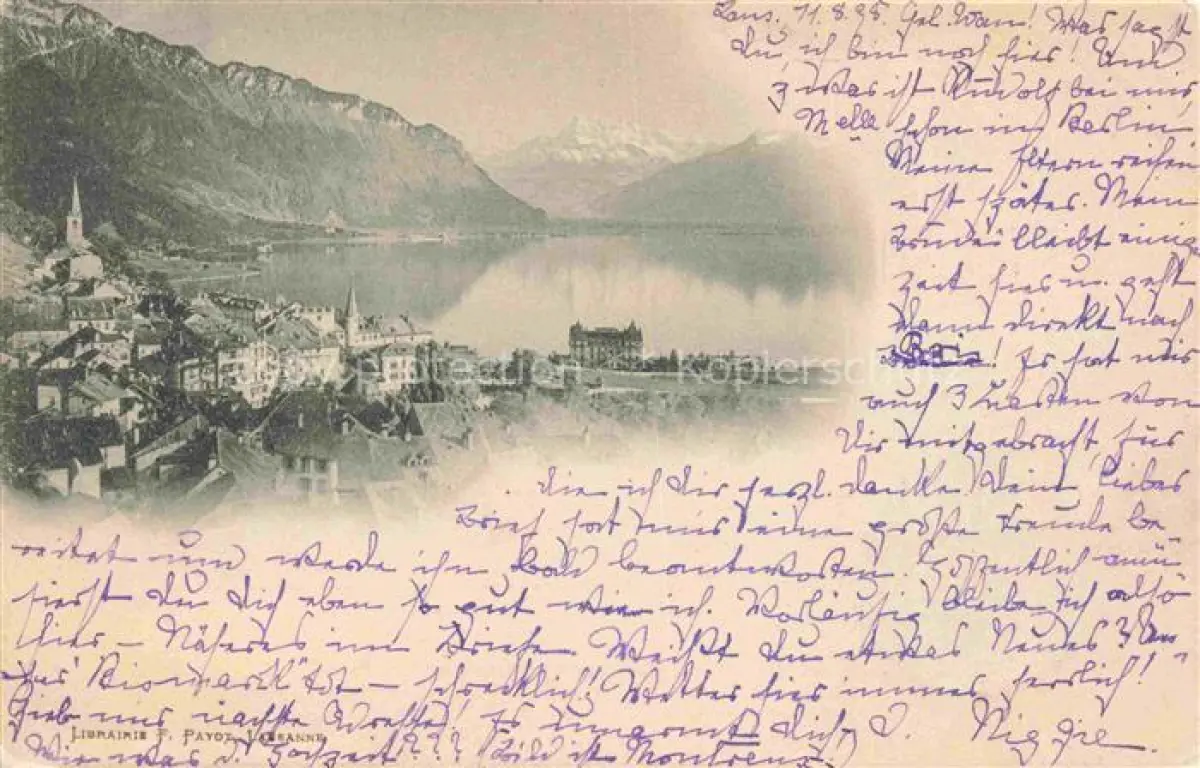 Laus. 11.8.98. Gel. Wam! Was sagst
du, ich bin noch hier! Und
zwar ist Rudolf bei mir,
Melle schon in Berlin
Meine Eltern reisen
erst später. Mein
Bruder bleibt einig
Zeit hier u. geht
dann direkt nach
Paris! Er hat mir
auch 3 Karten von
Dir mitgebracht, für
die ich dir herzl. danke. Dein lieber
Brief hat mir eine große Freude be-
reitet und werde ihn bald beantworten. Hoffentlich amü-
sierst du dich eben so gut wie ich. Vorläufig bleibe ich also
hier – Näheres im Briefe. Weißt du etwas Neues?
Bismarck tot – schrecklich! Wetter hier immer herrlich!
Gieb mir nächste Adresse! Es umarmt dich
LIBRAIRIE F. PAYOT, LAUSANNE
Wie war d. Hochzeit??? Bild ist Montreux.
copyright protection Kopierschutz